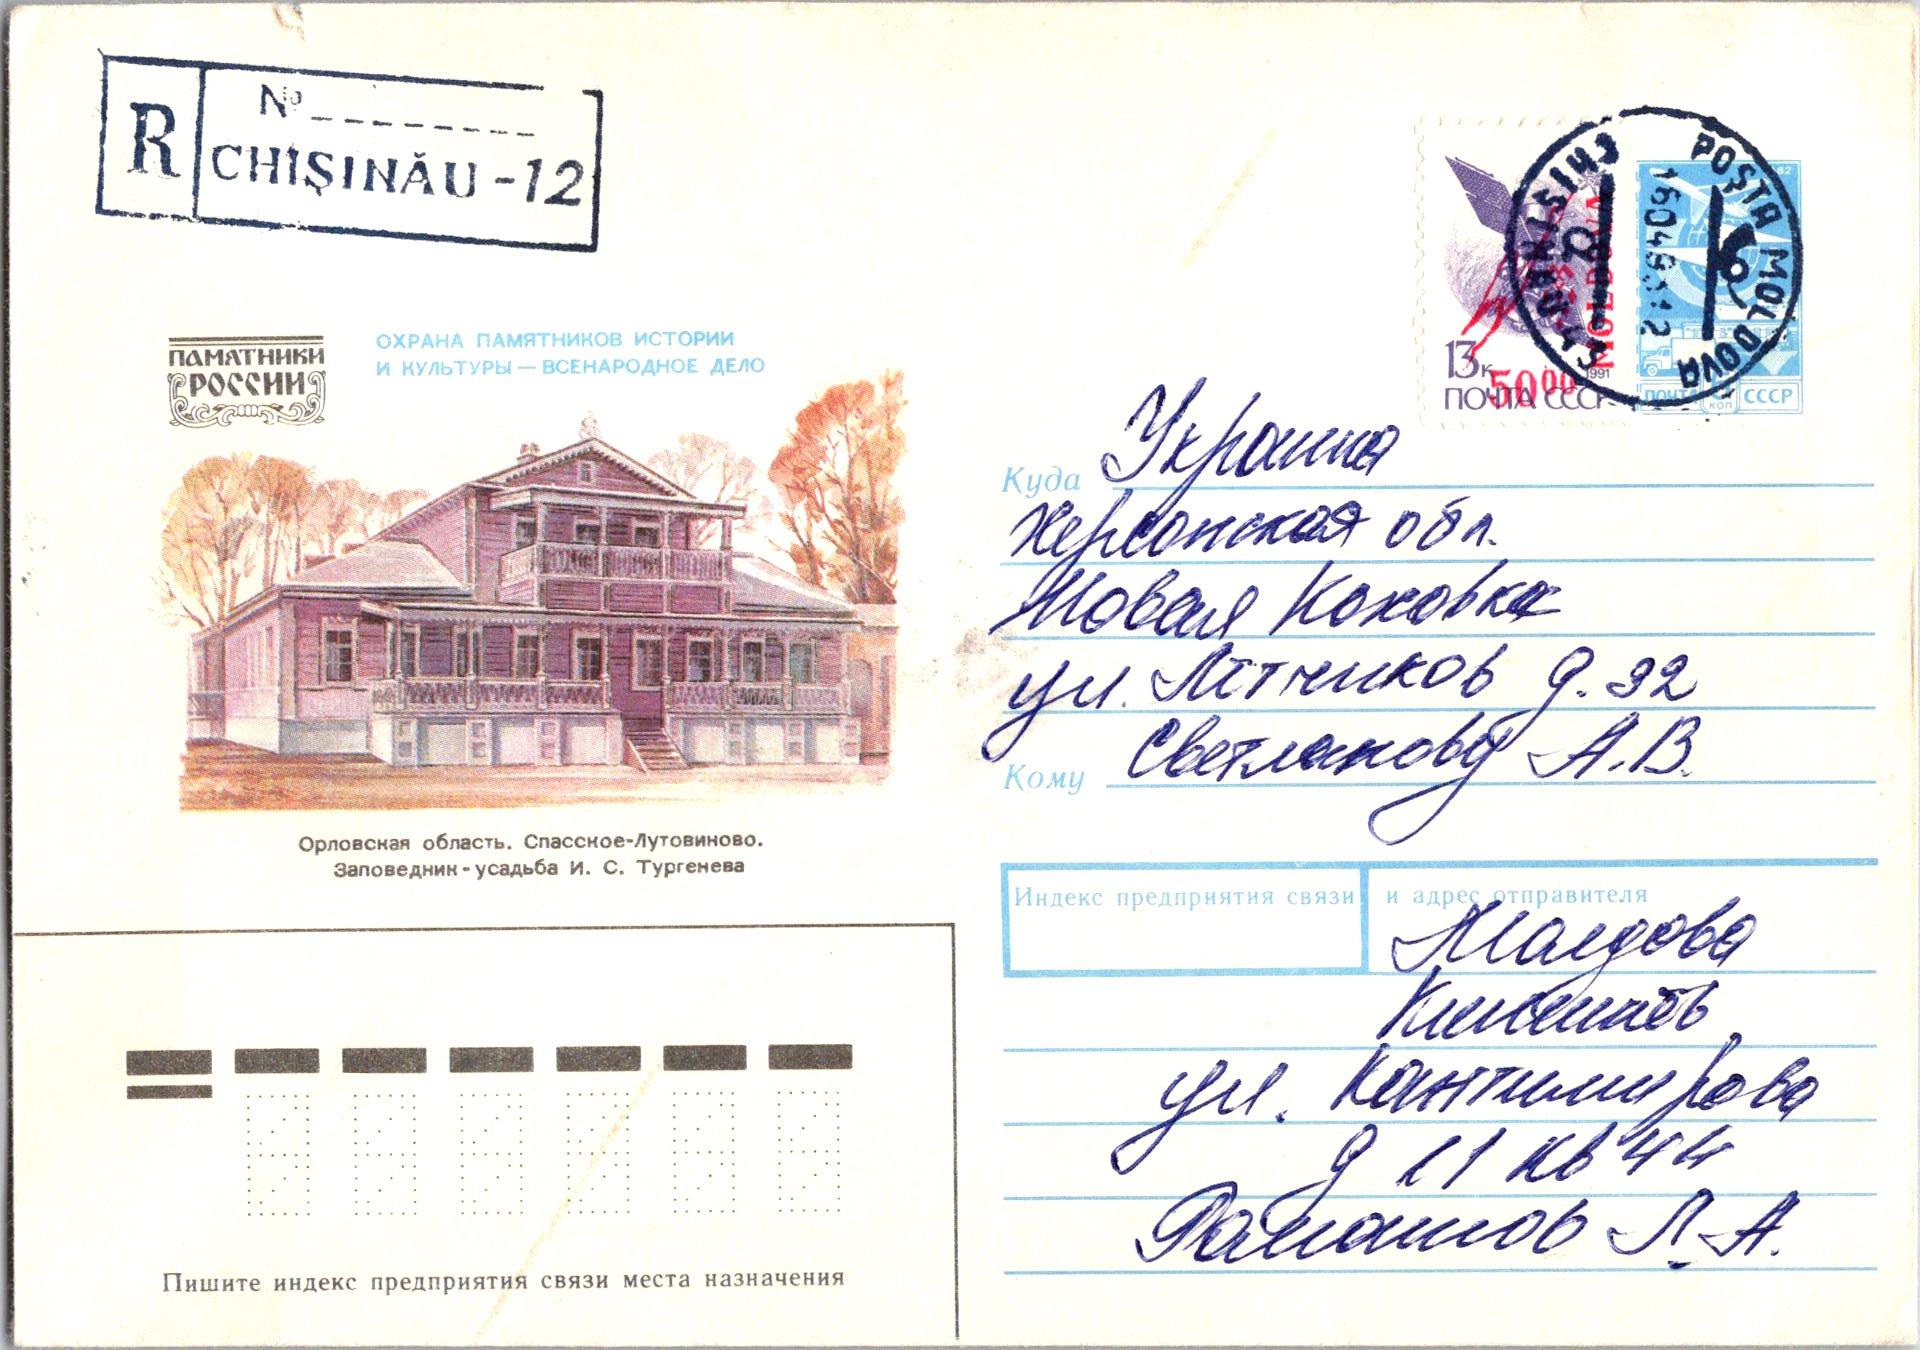 R
№
CHIŞINĂU -12
ПАМЯТНИКИ
РОССИИ
ОХРАНА ПАМЯТНИКОВ ИСТОРИИ
И КУЛЬТУРЫ — ВСЕНАРОДНОЕ ДЕЛО
Орловская область. Спасское-Лутовиново.
Заповедник-усадьба И. С. Тургенева
13к
1991
ПОЧТА СССР
MOLDOVA
50 00
CHISINAU
POŞTA MOLDOVA
ПОЧТА СССР
коп
Куда Украина
Херсонская обл.
Новая Каховка
ул. Летчиков д. 92
Кому Светлакову А.В.
Индекс предприятия связи и адрес отправителя
Молдова
Кишинёв
ул. Кантимирова
д 11 кв 44
Ромашов Л.А.
Пишите индекс предприятия связи места назначения